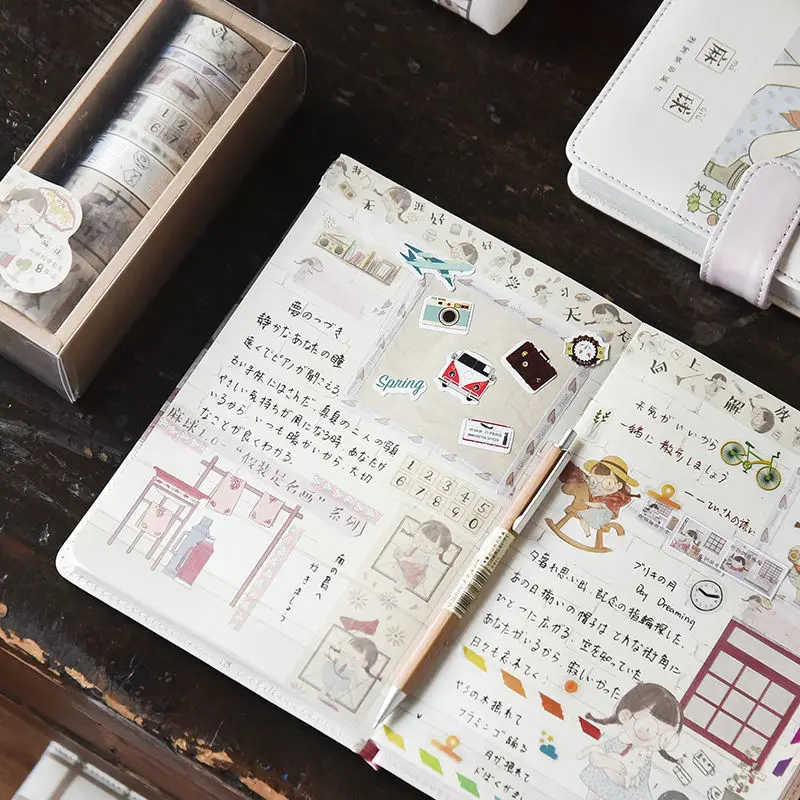 麻
má
球
qiú
麻球
天气好
天
向上解放
Spring
夢のつづき
静かなあなたの瞳
遠くでピアノが聞こえる
古い手帳にはさんだ 真夏の二人の写真
やさしい気持ちが風になる時 あなたが
いるから、いつも暖かいから、大切
なことが良くわかる。
麻球1.0 "假装是名画" 系列
1 2 3 4 5
6 7 8 9 0
南の島へ
行きましょう
天気がいいから
一緒に散歩しましょう
ブリキの月
Day Dreaming
夕暮れ思い出、記念の指輪探した、
あの日揃いの帽子は どんな街角に
ひとつに広がる、空を知っていた
あなたがいるから、寂しいかった
日々も忘れてく
ヤシの木揺れて
フラミンゴ踊る
月が揺れて